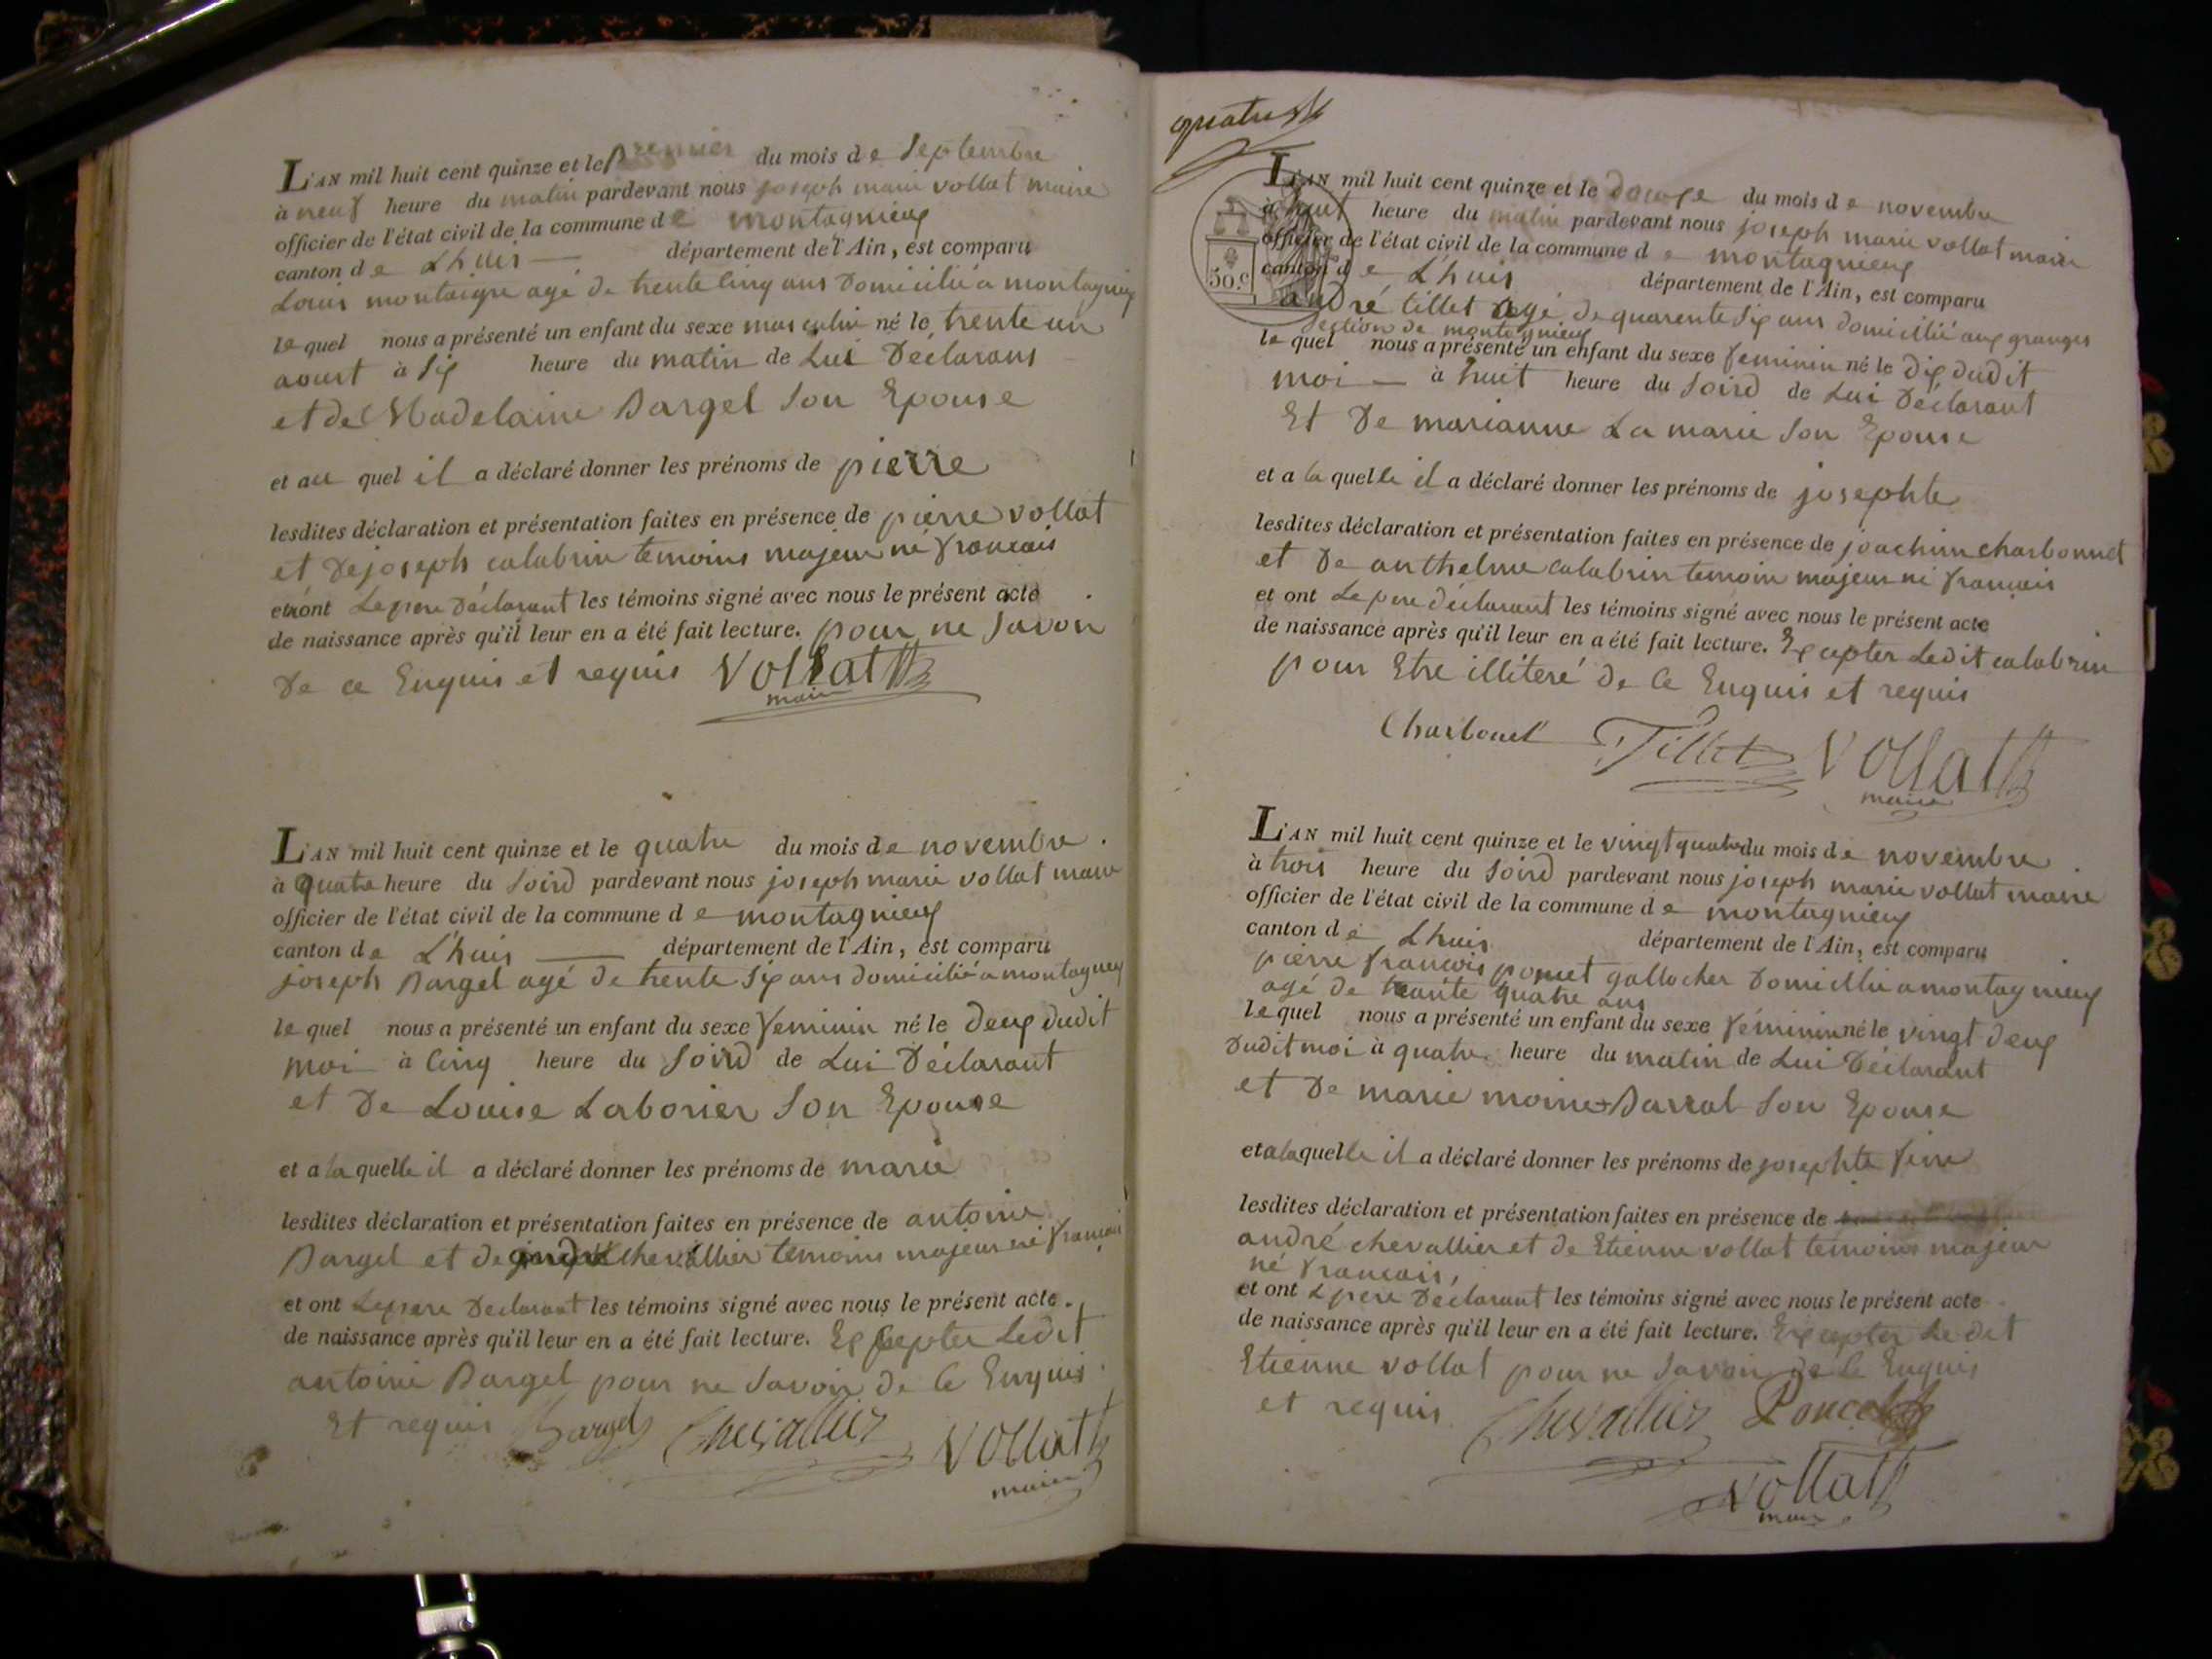 L'AN mil huit cent quinze et le premier du mois de Septembre
à neuf heure du matin pardevant nous joseph marie vollat maire
officier de l'état civil de la commune de montagnieux
canton de Lhuis département de l'Ain, est comparu
Louis montaigre agé de trente cinq ans Domicilié a montagnieux
le quel nous a présenté un enfant du sexe masculin né le trente un
aoust à six heure du matin de Lui Déclarans
et de Madelaine Dargel Son Epouse
et au quel il a déclaré donner les prénoms de pierre
lesdites déclaration et présentation faites en présence de pierre vollat
et De joseph calabrin temoins majeur né francais
et ont Le pere Déclarant les témoins signé avec nous le présent acte
de naissance après qu'il leur en a été fait lecture. pour ne Savoir
De ce Enquis et requis Vollat
maire
L'AN mil huit cent quinze et le quatre du mois de novembre
à quatre heure du Soird pardevant nous joseph marie vollat maire
officier de l'état civil de la commune de montagnieux
canton de L'huis département de l'Ain, est comparu
joseph Dargel agé de trente Six ans domicilié a montagnieux
le quel nous a présenté un enfant du sexe feminin né le Deux dudit
moi à Cinq heure du Soird de Lui Déclarant
et De Louise Laborier Son Epouse
et a la quelle il a déclaré donner les prénoms de marie
lesdites déclaration et présentation faites en présence de antoine
Dargel et de chevallier temoins majeur né francais
et ont Le pere Declarant les témoins signé avec nous le présent acte.
de naissance après qu'il leur en a été fait lecture. Excepter Ledit
antoine Dargel pour ne Savoir de Ce Enquis
Et requis Dargel Chevallier Vollat
maire
quatre
L'AN mil huit cent quinze et le douze du mois de novembre
à huit heure du matin pardevant nous joseph marie vollat maire
officier de l'état civil de la commune de montagnieux
canton de L'huis département de l'Ain, est comparu
50 c.
andré tillet agé de quarente Six ans domicilié aux granges
Section de montagnieux
le quel nous a présenté un enfant du sexe feminin né le Dix dudit
moi à huit heure du Soird de Lui Déclarant
Et De marianne La marie Son Epouse
et a la quelle il a déclaré donner les prénoms de josephte
lesdites déclaration et présentation faites en présence de joachim charbonnet
et De anthelme calabrin temoin majeur né francais
et ont Le pere déclarant les témoins signé avec nous le présent acte
de naissance après qu'il leur en a été fait lecture. Excepter Ledit calabrin
pour Etre illiteré de Ce Enquis et requis
Charbonet Tillet Vollat
maire
L'AN mil huit cent quinze et le vingt quatre du mois de novembre
à trois heure du Soird pardevant nous joseph marie vollat maire
officier de l'état civil de la commune de montagnieux
canton de Lhuis département de l'Ain, est comparu
pierre francois gallocher Domicilié a montagnieux
agé de quatre ans
le quel nous a présenté un enfant du sexe féminin né le vingt Deux
dudit moi à quatre heure du matin de Lui Déclarant
et De marie moine Darral Son Epouse
et a la quelle il a déclaré donner les prénoms de josephte fine
lesdites déclaration et présentation faites en présence de
andré chevallier et de Etienne vollat témoins majeur
né francais,
et ont Le pere Declarant les témoins signé avec nous le présent acte
de naissance après qu'il leur en a été fait lecture. Excepter Le dit
Etienne vollat pour ne Savoir de Ce Enquis
et requis Chevallier Poncet
Vollat
maire